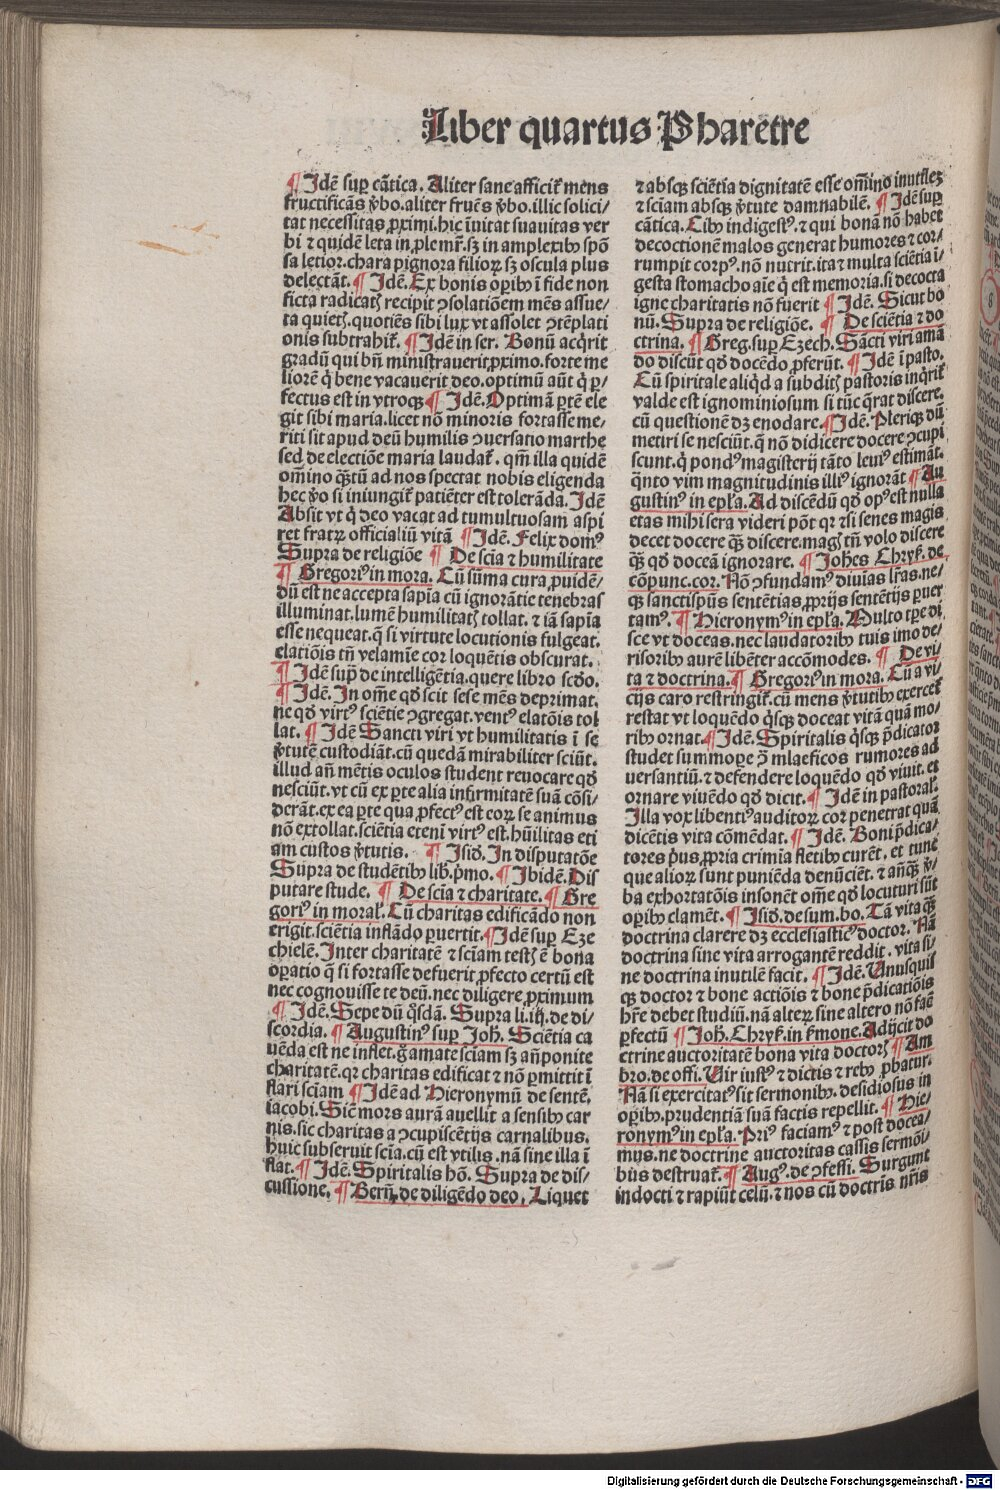 Liber quartus Pharetre
¶ Idē suꝑ cātica. Aliter sane afficit᷑ mens
fructificās v̄bo. aliter fruēs v̄bo. illic solici/
tat necessitas ꝓximi. hic īuitat suauitas ver
bi ⁊ quidē leta in ꝓle mr̄. sꝫ in amplexibꝰ spō
sa letior. chara pignora filioꝝ sꝫ oscula plus
delectāt. ¶ Idē. Ex bonis oꝑibꝰ ī fide non
ficta radicatꝭ recipit ꝯsolatiōem mēs assue/
ta quietꝭ. quotiēs sibi lux vt assolet ꝯtēplati
onis subtrahit᷑. ¶ Idē in ser. Bonū acq̄rit
gradū qui bn̄ ministrauerit ꝓximo. forte me
liorē q̇ bene vacauerit deo. optimū aūt q̇ ꝑ/
fectus est in vtroqꝫ ¶ Idē. Optimā ꝑtē ele
git sibi maria. licet nō minoris fortasse me/
riti sit apud deū humilis ꝯuersatio marthe
sed de electiōe maria laudat᷑. qm̄ illa quidē
om̄ino q̄ꝫtū ad nos spectat nobis eligenda
hec v̄o si iniungit᷑ patiēter est tolerāda. Idē
Absit vt q̇ deo vacat ad tumultuosam aspi
ret fratꝝ officialiū vitā ¶ Idē. Felix domꝰ
Supra de religiōe ¶ De scīa ⁊ humilitate
¶ Gregoriꝰ in mora. Cū sūma cura ꝓuidē/
dū est ne accepta sapīa cū ignorātie tenebras
illuminat. lumē humilitatꝭ tollat. ⁊ iā sapīa
esse nequeat. q̄ si virtute locutionis fulgeat.
elatiōis tn̄ velamīe cor loquētis obscurat.
¶ Idē sup̄ de intelligētia. quere libro scd̄o.
¶ Idē. In om̄e qd̄ scit sese mēs deprimat.
ne qd̄ virtꝰ sciētie ꝯgregat. ventꝰ elatōis tol
lat. ¶ Idē Sancti viri vt humilitatis ī se
v̄tutē custodiāt. cū quedā mirabiliter sciūt.
illud an̄ mētis oculos student reuocare qd̄
nesciūt. vt cū ex ꝑte alia infirmitatē suā cōsi/
derāt. ex ea ꝑte qua ꝑfectꝰ est eoꝝ se animus
nō extollat. sciētia etenī virtꝰ est. hūilitas eti
am custos v̄tutis. ¶ Isid̄. In disputatōe
Supra de studētibꝰ lib. p̄mo. ¶ Ibidē. Dis
putare stude. ¶ De scīa ⁊ charitate. ¶ Gre
goriꝰ in moral᷑. Cū charitas edificādo non
erigit. sciētia inflādo ꝑuertit. ¶ Idē suꝑ Eze
chielē. Inter charitatē ⁊ sciam testꝭ ē bona
oꝑatio q̄ si fortasse defuerit ꝓfecto certū est
nec cognouisse te deū. nec diligere ꝓximum
¶ Idē. Sepe dū q̇sdā. Supra li. iij. de di/
scordia. ¶ Augustinꝰ suꝑ Joh̄. Sciētia ca
uēda est ne inflet. g̊ amate sciam sꝫ an̄ponite
charitatē. qꝛ charitas edificat ⁊ nō ꝑmittit ī
flari sciam ¶ Idē ad Hieronymū de sentē.
iacobi. Sic̄ mors aurā auellit a sensibꝰ car
nis. sic charitas a ꝯcupiscētijs carnalibus.
huic subseruit scīa. cū est vtilis. nā sine illa ī
flat. ¶ Idē. Spiritalis hō. Supra de dis/
cussione. ¶ Bern̄. de diligēdo deo. Liquet
⁊ absqꝫ sciētia dignitatē esse om̄ino inutilez
⁊ sciam absqꝫ v̄tute damnabilē. ¶ Idē suꝑ
cātica. Cibꝰ indigestꝰ. ⁊ qui bonā nō habet
decoctionē malos generat humores ⁊ cor/
rumpit corpꝰ. nō nutrit. ita ⁊ multa sciētia ī/
gesta stomacho aīe q̇ est memoria. si decocta
igne charitatis nō fuerit ¶ Idē. Sicut bo
nū. Supra de religiōe. ¶ De sciētia ⁊ do
ctrina. ¶ Greg. suꝑ Ezech. Sācti viri amā
do discūt qd̄ docēdo ꝓferūt. ¶ Idē ī pasto.
Cū spiritale aliqd̄ a subditꝭ pastoris inq̇rit᷑
valde est ignominiosum si tūc q̄rat discere.
cū questionē dꝫ enodare. ¶ Idē. Pleriqꝫ dū
metiri se nesciūt. q̄ nō didicere docere ꝯcupi
scunt. q̇ pondꝰ magisterij tāto leuiꝰ estimāt.
q̄nto vim magnitudinis illiꝰ ignorāt ¶ Au
gustinꝰ in epl̄a. Ad discēdū qd̄ opꝰ est nulla
etas mihi sera videri pōt qꝛ ⁊ si senes magis
decet docere q̄ꝫ discere. magꝭ tn̄ volo discere
q̄ꝫ qd̄ doceā ignorare. ¶ Joh̄es Chryſ. de
cōpunc. cor. Nō ꝯfundamꝰ diuīas lr̄as. ne/
qꝫ sanctisp̄us sentētias ꝓprijs sentētijs ꝑuer
tamꝰ. ¶ Hieronymꝰ in epl̄a. Multo tꝑe di
sce vt doceas. nec laudatoribꝰ tuis imo de/
risoribꝰ aurē libēter accōmodes. ¶ De vi/
ta ⁊ doctrina. ¶ Gregoriꝰ in mora. Cū a vi/
cijs caro restringit᷑. cū mens v̄tutibꝰ exercet᷑
restat vt loquēdo q̇sqꝫ doceat vitā quā mo/
ribꝰ ornat. ¶ Idē. Spiritalis q̇sqꝫ p̄dicator
studet summoꝑe ꝯ̄ mlaeficos rumores ad
uersantiū. ⁊ defendere loquēdo qd̄ viuit. et
ornare viuēdo qd̄ dicit. ¶ Idē in pastoral᷑.
Illa vox libentiꝰ auditoꝝ cor penetrat quā
dicētis vita cōmēdat. ¶ Idē. Boni p̄dica/
tores pͥus ꝓpria crimīa fletibꝰ curēt. et tunc
que alioꝝ sunt puniēda denūciēt. ⁊ anq̄ꝫ v̄/
ba exhortatōis insonēt om̄e qd̄ locuturi sūt
oꝑibꝰ clament. ¶ Isid̄. de sum. bo. Tā vita q̄ꝫ
doctrina clarere dꝫ ecclesiasticꝰ doctor. Nā
doctrina sine vita arrogantē reddit. vita si/
ne doctrina inutilē facit. ¶ Idē. Unusquis
qꝫ doctor ⁊ bone actiōis ⁊ bone p̄dicatiōis
hr̄e debet studiū. nā alteꝝ sine altero nō facē
ꝑfectū ¶ Joh̄. Chryſ. in ẜmone. Adijcit do
ctrine auctoritatē bona vita doctorꝭ ¶ Am
bro. de offi. Uir iustꝰ ⁊ dictis ⁊ rebꝰ ꝓbatur.
Nā si exercitatꝰ sit sermonibꝰ. desidiosus in
oꝑibꝰ. prudentiā suā factis repellit. ¶ Hie/
ronymꝰ in epl̄a. Priꝰ faciamꝰ ⁊ post docea/
mus. ne doctrine auctoritas cassis sermōi/
bus destruat᷑. ¶ Augꝰ. de ꝯfessi. Surgunt
indocti ⁊ rapiūt celū. ⁊ nos cū doctrīs nr̄is
Digitalisierung gefördert durch die Deutsche Forschungsgemeinschaft - DFG